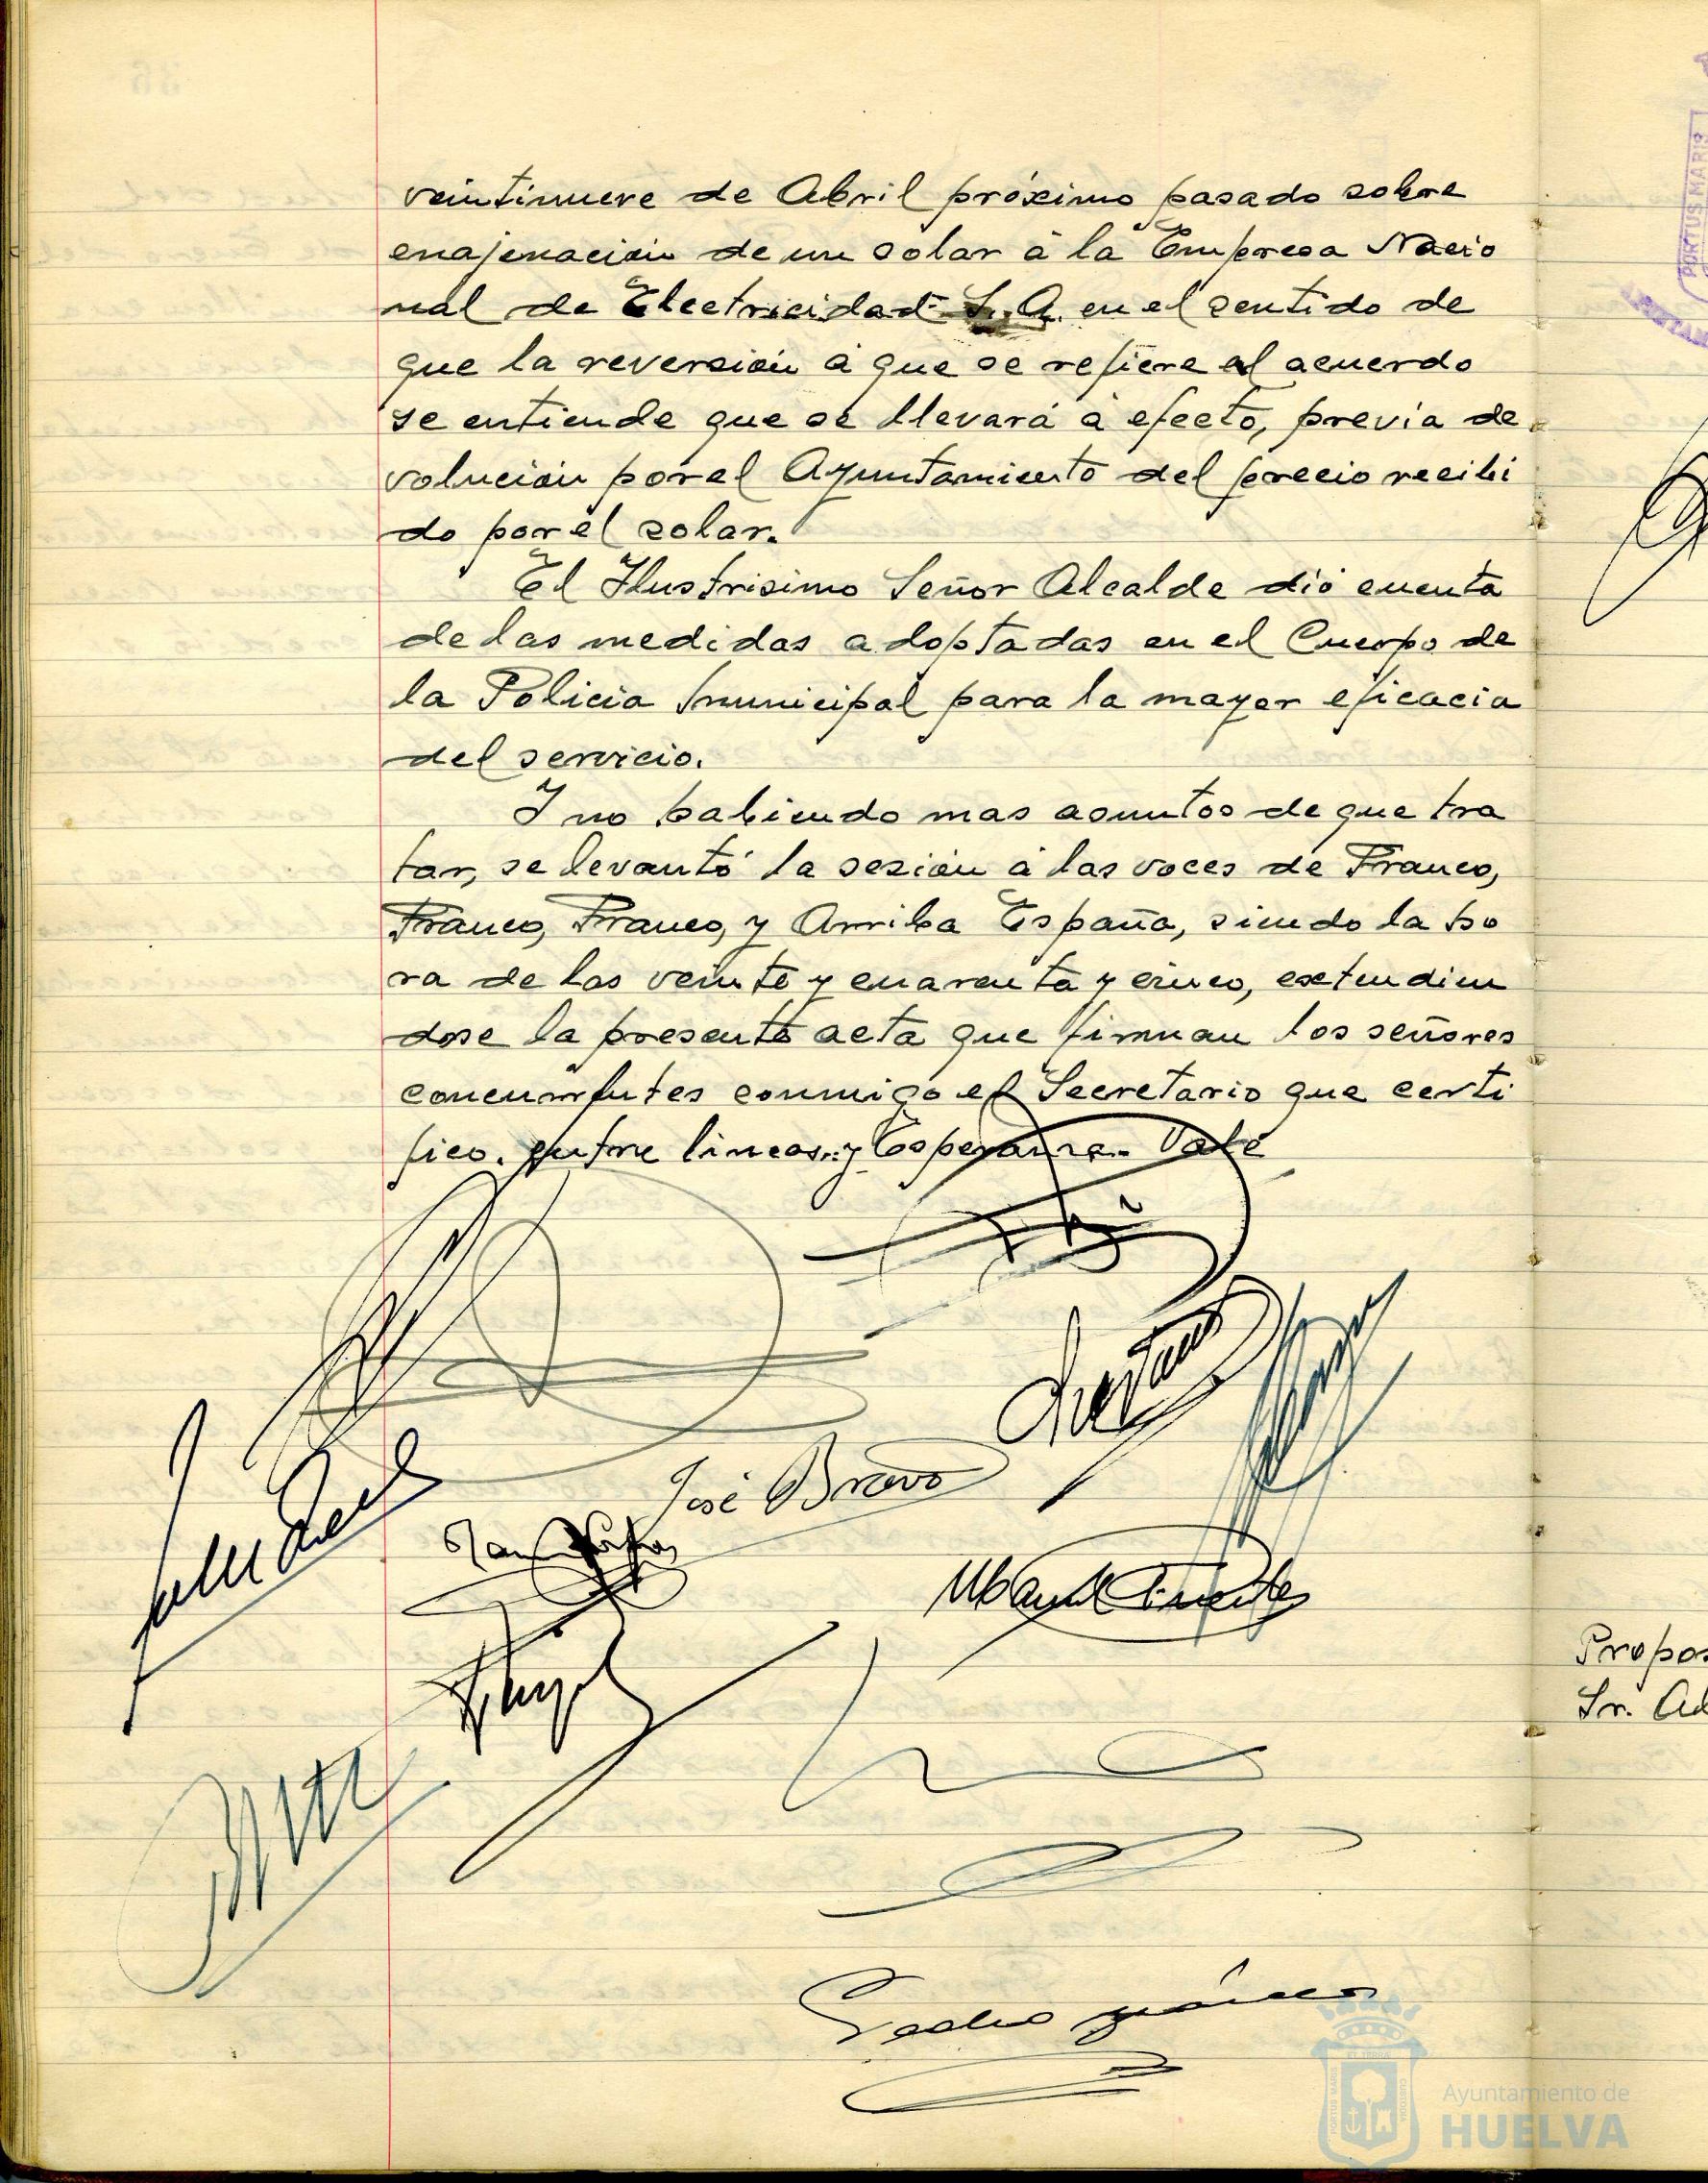 veintinueve de Abril próximo pasado sobre
enajenación de un solar á la Empresa Nacio
nal de Electricidad S. A. en el sentido de
que la reversión á que se refiere el acuerdo
se entiende que se llevará á efecto, previa de
volución por el Ayuntamiento del precio recibi
do por el solar.
El Ilustrisimo Señor Alcalde dió cuenta
de las medidas adoptadas en el Cuerpo de
la Policia Municipal para la mayor eficacia
del servicio.
Y no habiendo mas asuntos de que tra
tar, se levantó la sesión á las voces de Franco,
Franco, Franco, y Arriba España, siendo la ho
ra de las veinte y cuarenta y cinco, extendien
dose la presente acta que firman los señores
concurrentes conmigo el Secretario que certi
fico. entre lineas.-y Esperanza.- Vale
José Bravo
Manuel Fuentes
Propos
Sr. Ad
PORTUS MARIS
Ayuntamiento de
HUELVA